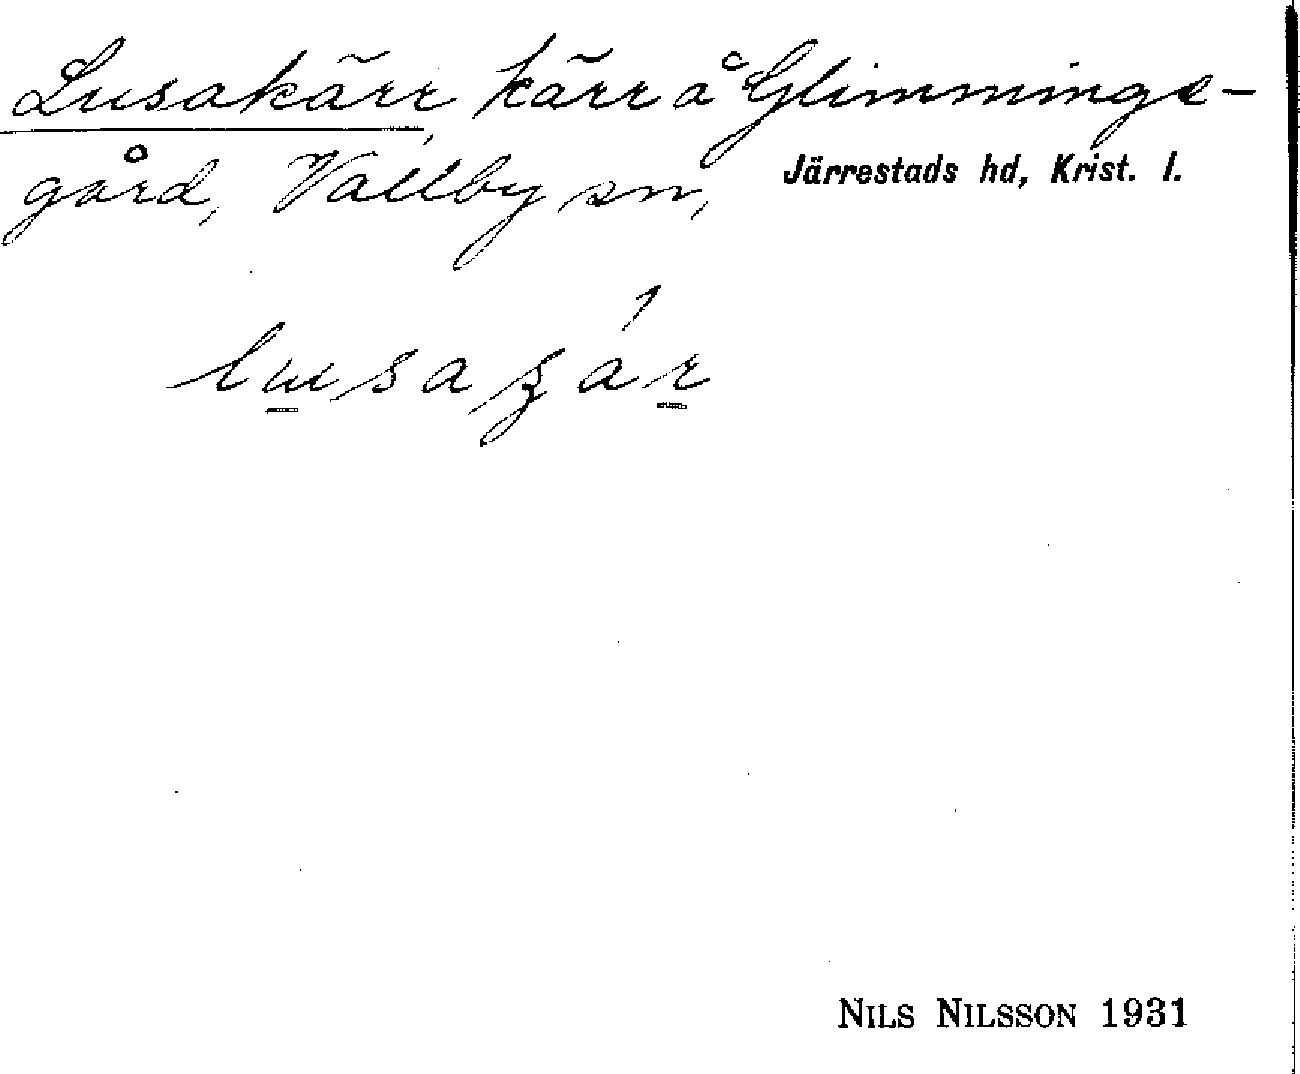 Lusakärr, kärr å Glimminge-
gård, Vallby sn, Järrestads hd, Krist. l.
NILS NILSSON 1931